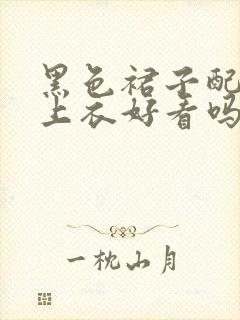 黑色裙子配
上衣好看吗
一枕山月